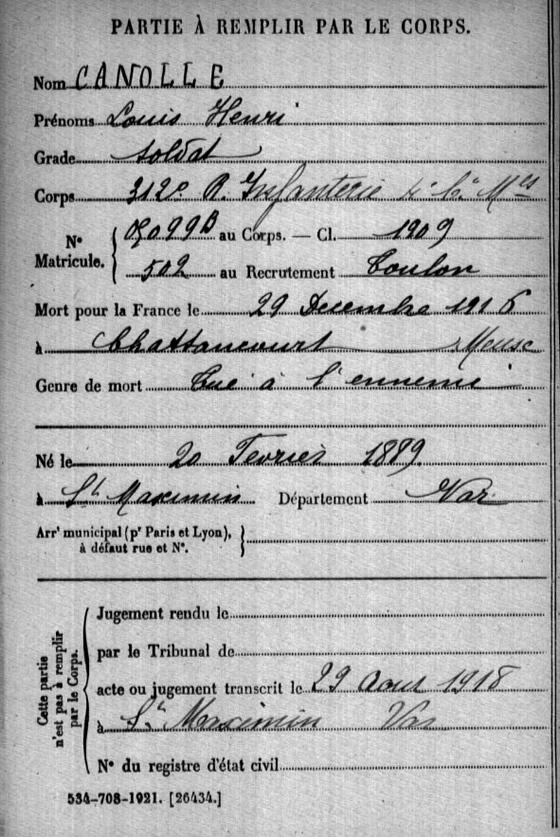 PARTIE À REMPLIR PAR LE CORPS.
Nom CANOLLE
Prénoms Louis Henri
Grade soldat
Corps 312e R. Infanterie
Nº Matricule. { 05099B au Corps. — Cl. 1909
502 au Recrutement Toulon
Mort pour la France le 29 Decembre 1916
à Chattancourt Meuse
Genre de mort Tué à l'ennemi
Né le 20 Fevrier 1889
à St Maximin Département Var
Arrt municipal (pr Paris et Lyon), }
à défaut rue et Nº.
Cette partie n'est pas à remplir par le Corps.
Jugement rendu le
par le Tribunal de
acte ou jugement transcrit le 29 Aout 1918
à St Maximin Var
Nº du registre d'état civil
534-708-1921. [26434.]